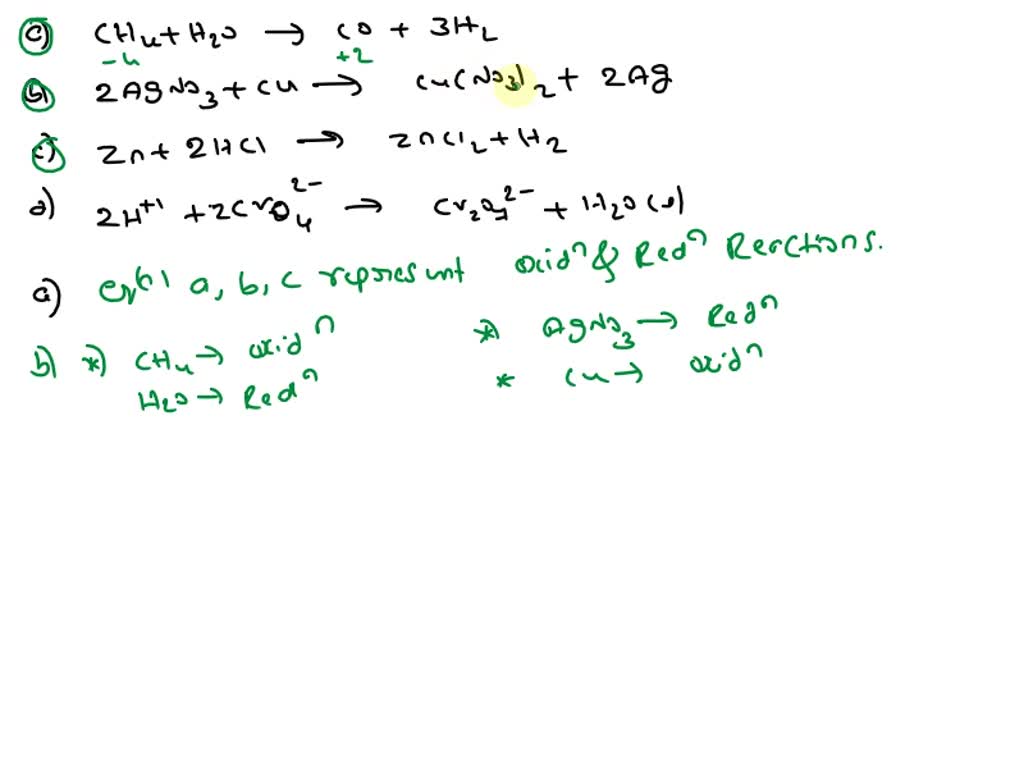 a) CH₄ + H₂O → CO + 3H₂
-4 +2
b) 2AgNO₃ + Cu → Cu(NO₃)₂ + 2Ag
c) Zn + 2HCl → ZnCl₂ + H₂
d) 2H⁺¹ + 2CrO₄²⁻ → Cr₂O₇²⁻ + H₂O(l)
a) eqⁿ a, b, c represent oxidⁿ & Redⁿ Reactions.
b) *) CH₄ → oxidⁿ *) AgNO₃ → Redⁿ
H₂O → Redⁿ * Cu → oxidⁿ